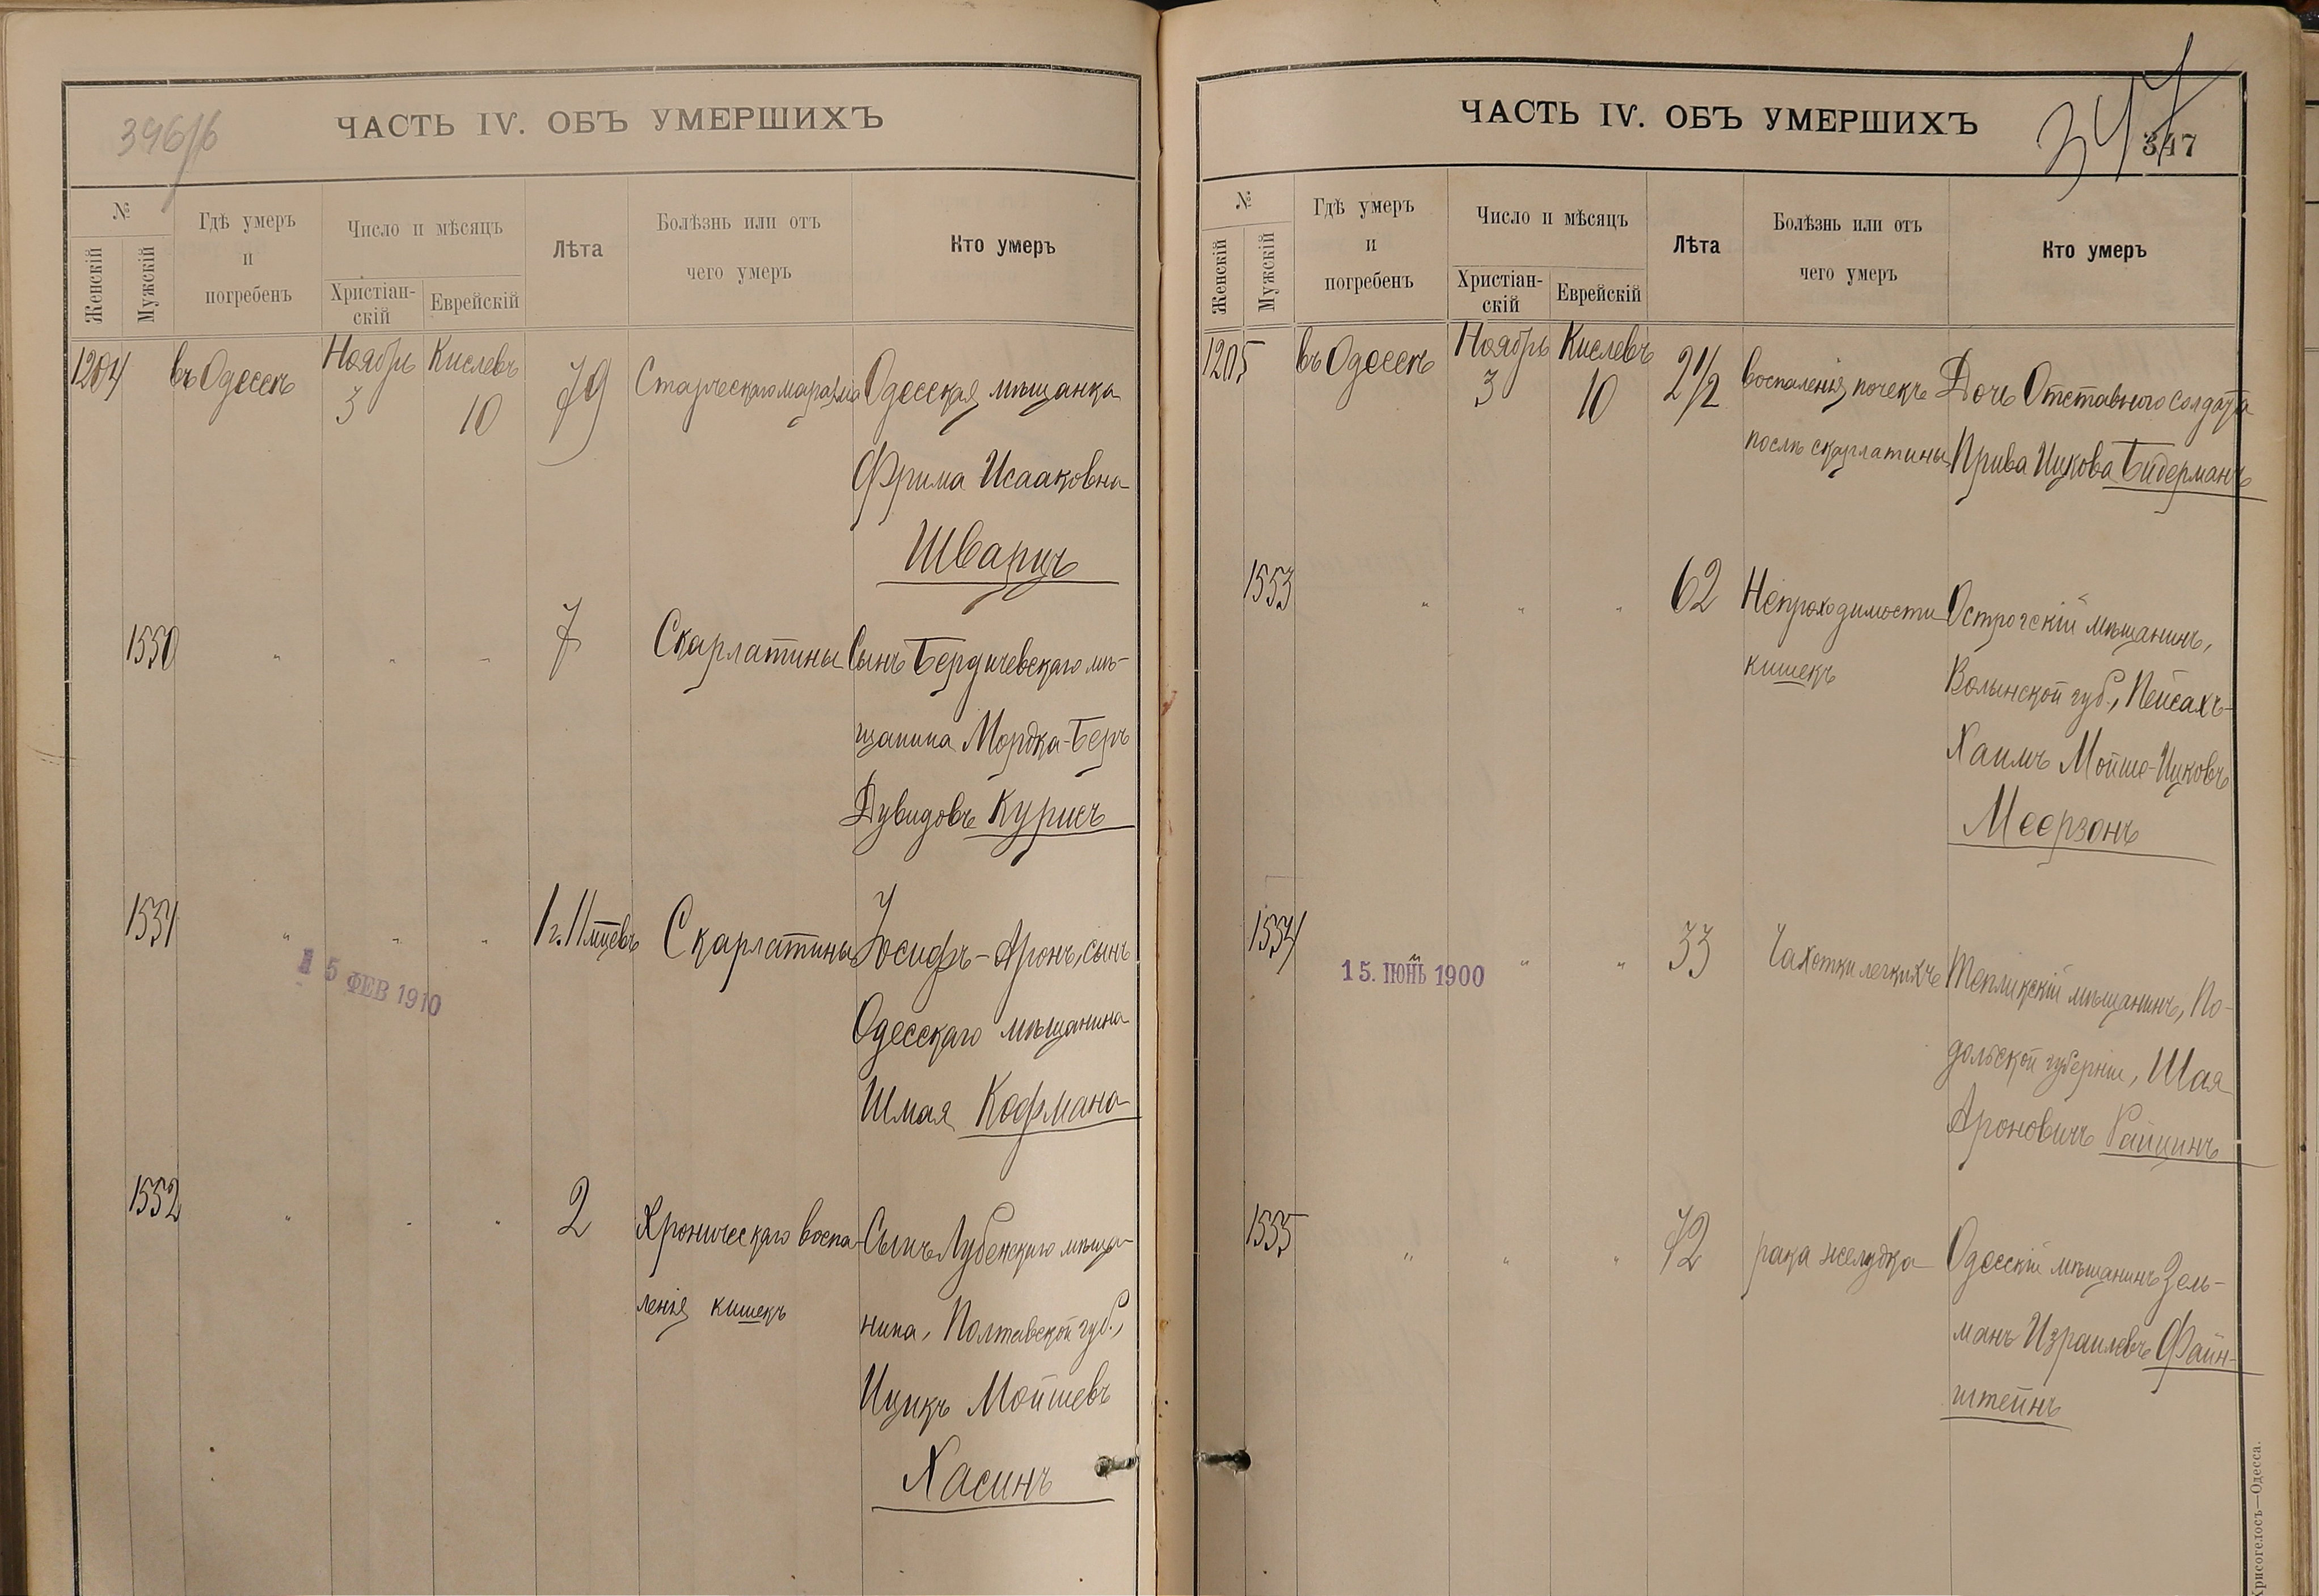 396/б
ЧАСТЬ IV. ОБЪ УМЕРШИХЪ
№
Женскій
Мужскій
Гдѣ умеръ
и
погребенъ
Число и мѣсяцъ
Христіан-
скій
Еврейскій
Лѣта
Болѣзнь или отъ
чего умеръ
Кто умеръ
1204 въ Одессѣ Ноябрь 3 Кислевъ 10 79 Старческаго маразма Одесская мѣщанка
Фрима Исааковна
Шварцъ
1550 " " " 7 Скарлатины Сынъ Бердичевскаго мѣ-
щанина Мордка-Беръ
Дувидовъ Курисъ
1551 " " " 1 г. 11 мцевъ Скарлатины Іосифъ-Аронъ, сынъ
15 ФЕВ 1910
Одесскаго мѣщанина
Шмая Кофмана
1552 " " " 2 Хроническаго воспа- Сынъ Лубенскаго мѣща-
ленія кишекъ нина, Полтавской губ.,
Ицикъ Мойшевъ
Хасинъ
347
ЧАСТЬ IV. ОБЪ УМЕРШИХЪ
347
№
Женскій
Мужскій
Гдѣ умеръ
и
погребенъ
Число и мѣсяцъ
Христіан-
скій
Еврейскій
Лѣта
Болѣзнь или отъ
чего умеръ
Кто умеръ
1205 въ Одессѣ Ноябрь 3 Кислевъ 10 2 1/2 воспаленія почекъ Дочь Отставного солдата
послѣ скарлатины Прива Ицкова Бидерманъ
1553 " " " 62 Непроходимости Острогскій мѣщанинъ,
кишекъ Волынской губ., Пейсахъ-
Хаимъ Мойше-Ицковъ
Меерзонъ
1554 " " " 33 Чахотки легкихъ Тепликскій мѣщанинъ, По-
15. ІЮНЬ 1900
дольской губерніи, Шая
Ароновичъ Райцинъ
1555 " " " 72 рака желудка Одесскій мѣщанинъ Зель-
манъ Израилевъ Файн-
штейнъ
Хрисогелосъ—Одесса.